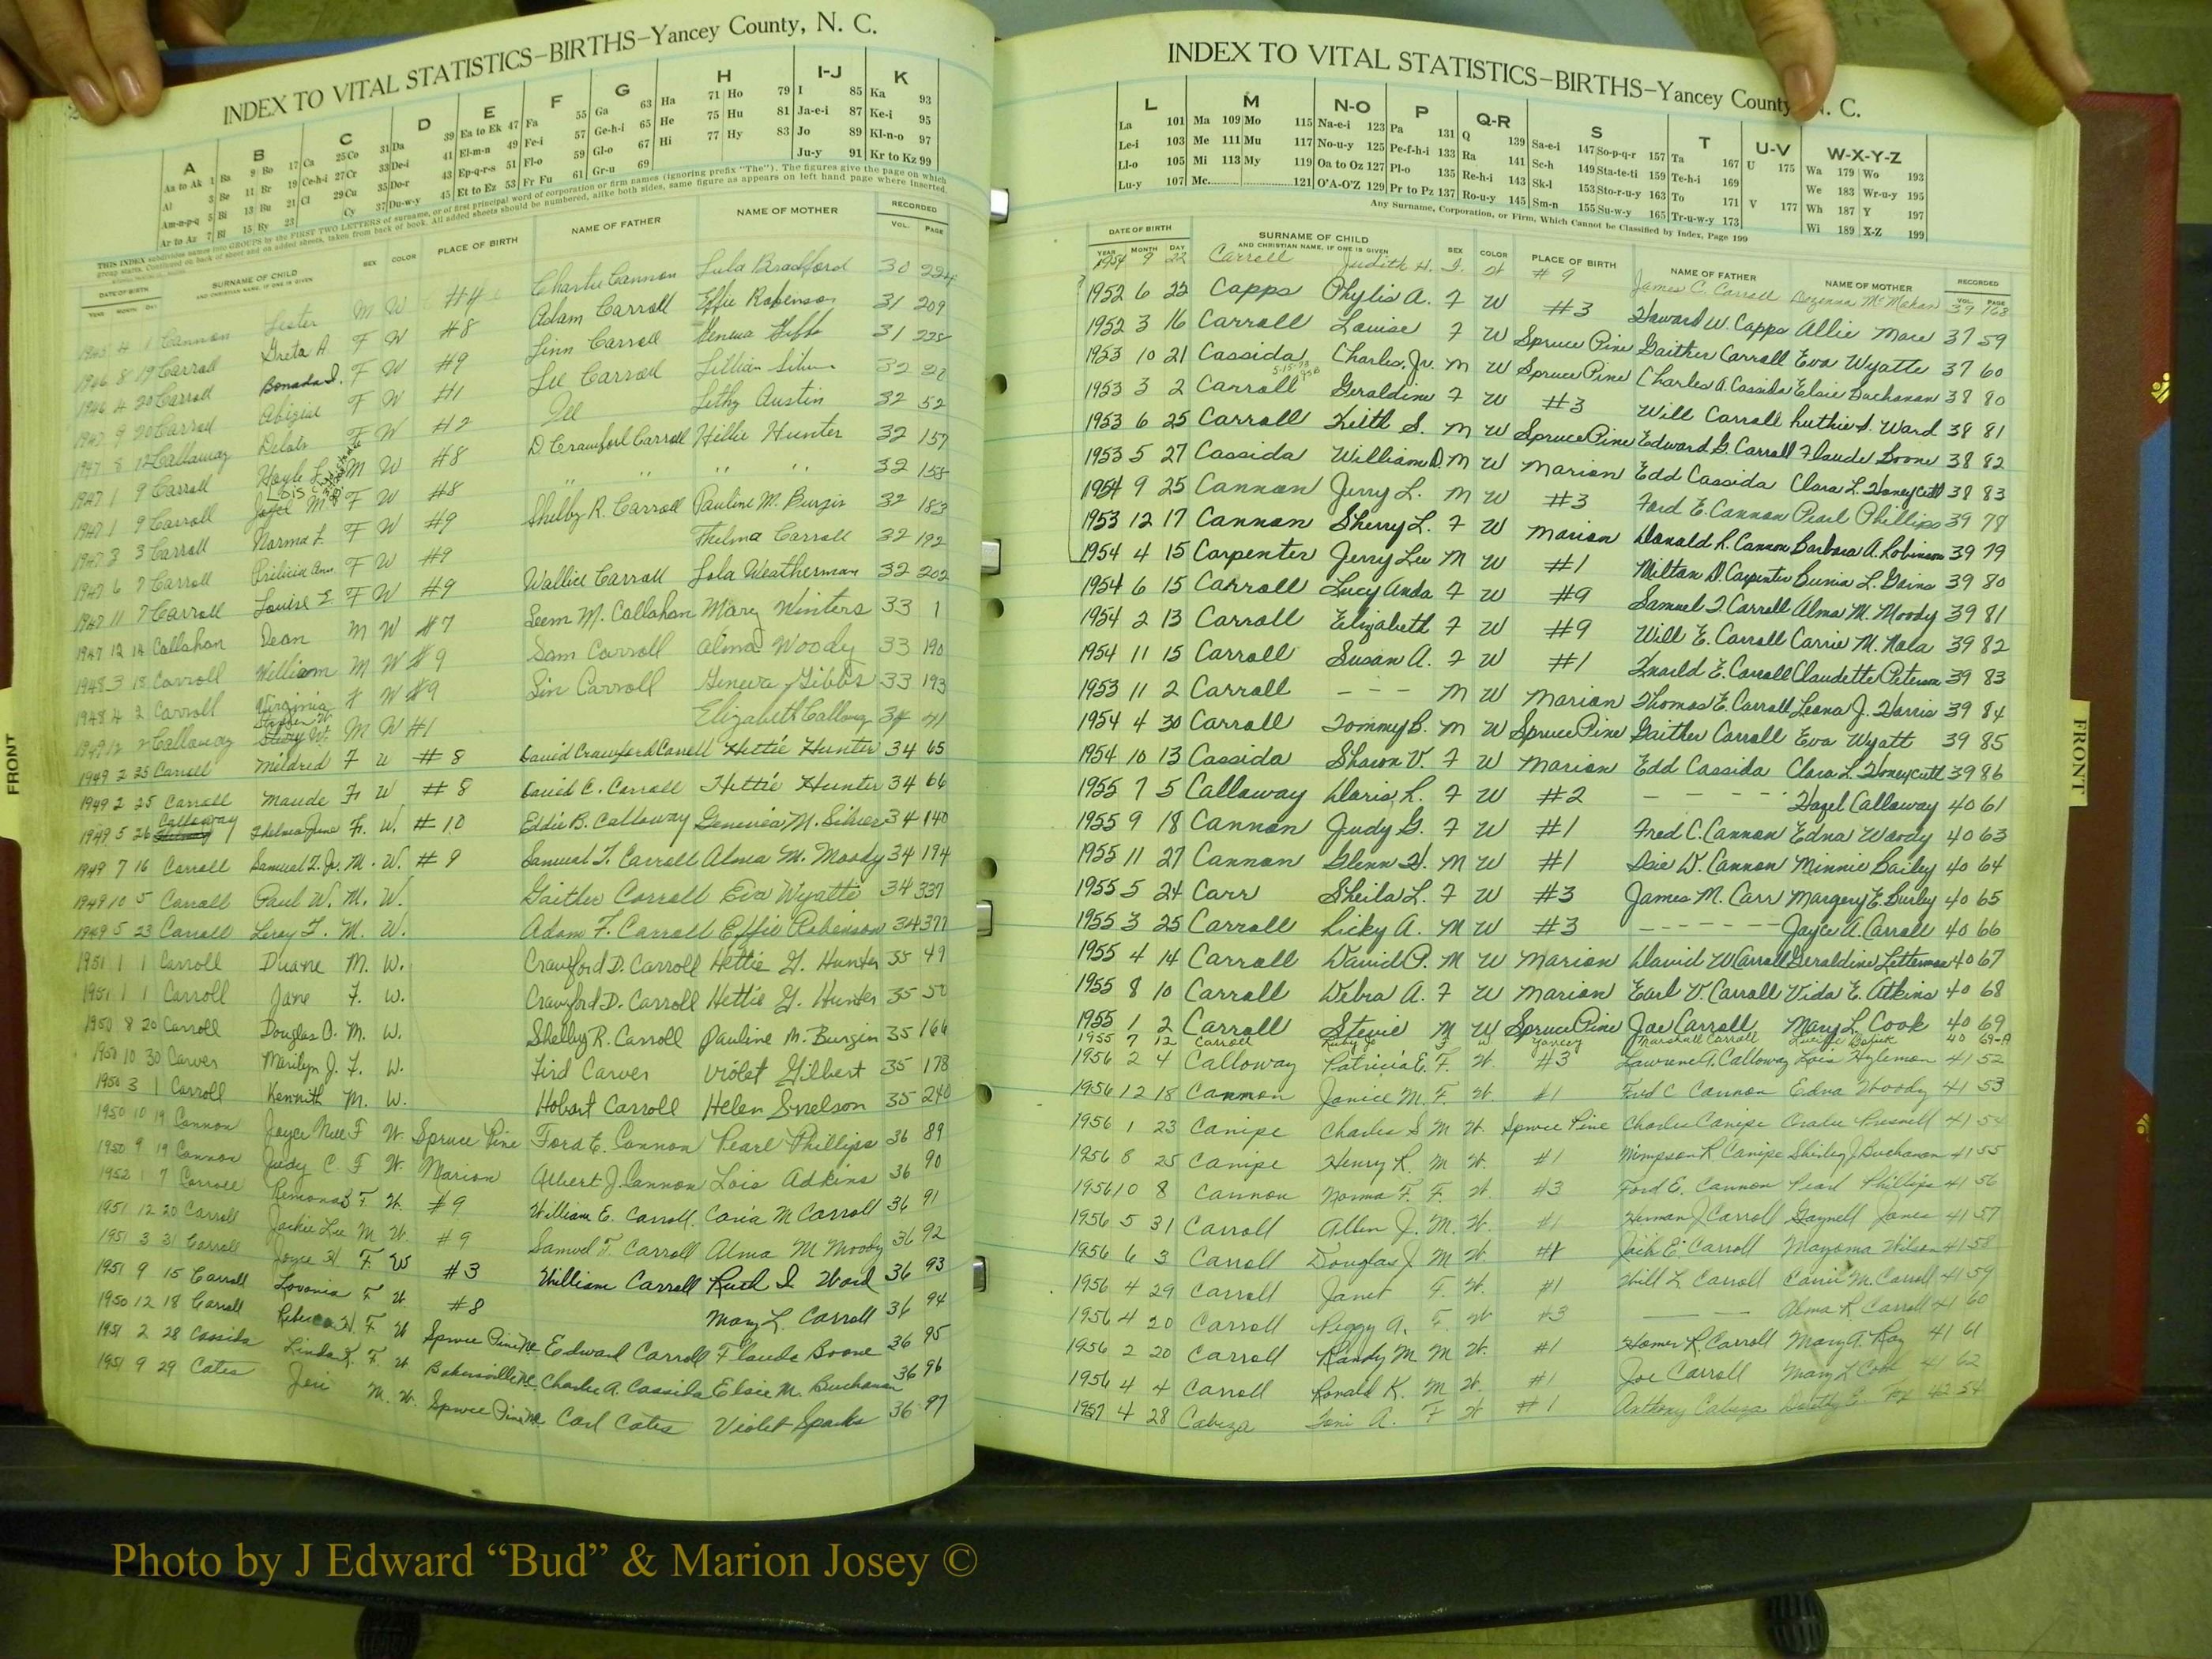 INDEX TO VITAL STATISTICS–BIRTHS–Yancey County, N. C.
A B C D E F G H I-J K
Aa to Ak 1 Ba 9 Bo 17 Ca 25 Co 31 Da 39 Ea to Ek 47 Fa 55 Ga 63 Ha 71 Ho 79 I 85 Ka 93
Al 3 Be 11 Br 19 Ce-h-i 27 Cr 33 De-i 41 El-m-n 49 Fe-i 57 Ge-h-i 65 He 75 Hu 81 Ja-e-i 87 Ke-i 95
Am-n-p-q 5 Bi 13 Bu 21 Cl 29 Cu 35 Do-r 43 Ep-q-r-s 51 Fl-o 59 Gl-o 67 Hi 77 Hy 83 Jo 89 Kl-n-o 97
Ar to Az 7 Bl 15 By 23 Cy 37 Du-w-y 45 Et to Ez 53 Fr Fu 61 Gr-u 69 Ju-y 91 Kr to Kz 99
THIS INDEX subdivides names into GROUPS by the FIRST TWO LETTERS of surname, or of first principal word of corporation or firm names (ignoring prefix "The"). The figures give the page on which
group starts. Continued on back of sheet and on added sheets, taken from back of book. All added sheets should be numbered, alike both sides, same figure as appears on left hand page where inserted.
DATE OF BIRTH SURNAME OF CHILD SEX COLOR PLACE OF BIRTH NAME OF FATHER NAME OF MOTHER RECORDED
YEAR MONTH DAY AND CHRISTIAN NAME, IF ONE IS GIVEN VOL. PAGE
Cannon Lester M W #4 Charlie Cannon Lula Bradford 30 224
1946 8 19 Carroll Greta A F W #8 Adam Carroll Effie Robinson 31 209
1946 4 20 Carroll F W #9 Linn Carroll Geneva Gibbs 31 228
1947 9 20 Carroll Abigial F W #1 Lee Carroll Lillian Silver 32
1947 8 12 Callaway F W #2 Lethy Austin 32 52
1947 1 9 Carroll Hoyle L. M W #8 D. Crawford Carroll Hillie Hunter 32 157
1947 1 9 Carroll Lois M F W #8 " " " 32 158
1947 3 3 Carroll Norma L F W #9 Shelby R. Carroll Pauline M. Burgin 32 183
1947 6 7 Carroll F W #9 Thelma Carroll 32 192
1947 11 7 Carroll Louise E F W #9 Wallice Carroll Lola Weatherman 32 202
1947 12 14 Callahan Dean M W #7 Seem M. Callahan Mary Winters 33 1
1948 3 18 Carroll William M W #9 Sam Carroll Alma Woody 33 190
1948 4 2 Carroll Virginia F W #9 Lin Carroll Geneva Gibbs 33 193
Callaway Stephen W. M W #1 Elizabeth Callaway 34 41
1949 2 25 Carroll Mildred F W #8 David Crawford Carroll Hettie Hunter 34 65
1949 2 25 Carroll Maude F. W #8 David C. Carroll Hettie Hunter 34 66
1949 5 26 Calloway Thelma June F. W. #10 Eddie B. Calloway Genevia M. Silver 34 140
1949 7 16 Carroll Samuel T. Jr. M. W. #9 Samuel T. Carroll Alma M. Moody 34 194
1949 10 5 Carroll Paul W. M. W. Gaither Carroll Eva Wyatte 34 337
1949 5 23 Carroll Leroy F. M. W. Adam F. Carroll Effie Robinson 34 377
1951 1 1 Carroll Duane M. W. Crawford D. Carroll Hettie G. Hunter 35 49
1951 1 1 Carroll Jane F. W. Crawford D. Carroll Hettie G. Hunter 35 50
1950 8 20 Carroll Douglas O. M. W. Shelby R. Carroll Pauline M. Burgin 35 166
1950 10 30 Carver Marilyn J. F. W. Fird Carver Violet Gilbert 35 178
1950 3 1 Carroll Kennith M. W. Hobart Carroll Helen Snelson 35 240
1950 10 19 Cannon Joyce Nell F W. Spruce Pine Ford E. Cannon Pearl Phillips 36 89
1950 9 19 Cannon Judy C. F W. Marion Albert J. Cannon Lois Adkins 36 90
1952 1 7 Carroll F. W. #9 William E. Carroll Carria M Carroll 36 91
1951 12 20 Carroll Jackie Lee M W. #9 Samuel T. Carroll Alma M Moody 36 92
1951 3 31 Carroll Joyce H F. W #3 William Carroll Ruth I Ward 36 93
1951 9 15 Carroll Lovonia F W #8 Mary L. Carroll 36 94
1950 12 18 Carroll Rebecca H. F. W Spruce Pine NC Edward Carroll Flaude Boone 36 95
1951 2 28 Cassida Linda K. F. W. Bakersville NC Charlie A. Cassida Elsie M. Buchanan 36 96
1951 9 29 Cates Jeri M. W. Spruce Pine NC Carl Cates Violet Sparks 36 97
INDEX TO VITAL STATISTICS–BIRTHS–Yancey County N. C.
L M N-O P Q-R S T U-V W-X-Y-Z
La 101 Ma 109 Mo 115 Na-e-i 123 Pa 131 Q 139 Sa-e-i 147 So-p-q-r 157 Ta 167 U 175 Wa 179 Wo 193
Le-i 103 Me 111 Mu 117 No-u-y 125 Pe-f-h-i 133 Ra 141 Sc-h 149 Sta-te-ti 159 Te-h-i 169 We 183 Wr-u-y 195
Ll-o 105 Mi 113 My 119 Oa to Oz 127 Pl-o 135 Re-h-i 143 Sk-l 153 Sto-r-u-y 163 To 171 V 177 Wh 187 Y 197
Lu-y 107 Mc 121 O'A-O'Z 129 Pr to Pz 137 Ro-u-y 145 Sm-n 155 Su-w-y 165 Tr-u-w-y 173 Wi 189 X-Z 199
Any Surname, Corporation, or Firm, Which Cannot be Classified by Index, Page 199
DATE OF BIRTH SURNAME OF CHILD SEX COLOR PLACE OF BIRTH NAME OF FATHER NAME OF MOTHER RECORDED
YEAR MONTH DAY AND CHRISTIAN NAME, IF ONE IS GIVEN VOL. PAGE
1954 9 22 Carroll Judith H. F. W #9 James C. Carroll McMahan 39 768
1952 6 22 Capps Phylis A. F W #3 Howard W. Capps Allie Mace 37 59
1952 3 16 Carroll Louise F W Spruce Pine Gaither Carroll Eva Wyatte 37 60
1953 10 21 Cassida Charles, Jr. M W Spruce Pine Charles A. Cassida Elsie Buchanan 38 80
1953 3 2 Carroll Geraldine F W #3 Will Carroll Ruthie I. Ward 38 81
1953 6 25 Carroll Keith S. M W Spruce Pine Edward G. Carroll Flaude Boone 38 82
1953 5 27 Cassida William D. M W Marion Edd Cassida Clara L. Honeycutt 38 83
1954 9 25 Cannon Jerry L. M W #3 Ford E. Cannon Pearl Phillips 39 78
1953 12 17 Cannon Sherry L. F W Marion Donald R. Cannon Barbara A. Robinson 39 79
1954 4 15 Carpenter Jerry Lee M W #1 Milton D. Carpenter Bunia L. Goins 39 80
1954 6 15 Carroll Lucy Anda F W #9 Samuel T. Carroll Alma M. Moody 39 81
1954 2 13 Carroll Elizabeth F W #9 Will E. Carroll Carrie M. 39 82
1954 11 15 Carroll Susan A. F W #1 E. Carroll Claudette Peterson 39 83
1953 11 2 Carroll - - - M W Marion Thomas E. Carroll Leona J. Harris 39 84
1954 4 30 Carroll Tommy B. M W Spruce Pine Gaither Carroll Eva Wyatt 39 85
1954 10 13 Cassida Sharon V. F W Marion Edd Cassida Clara L. Honeycutt 39 86
1955 7 5 Calloway Doris L. F W #2 - - - - Hazel Calloway 40 61
1955 9 18 Cannon Judy G. F W #1 Fred C. Cannon Edna Woody 40 63
1955 11 27 Cannon Glenn H. M W #1 D. Cannon Minnie Bailey 40 64
1955 5 24 Carr Sheila L. F W #3 James M. Carr Margery E. Burley 40 65
1955 3 25 Carroll Ricky A. M W #3 - - - - - - Joyce A. Carroll 40 66
1955 4 14 Carroll David P. M W Marion David W Carroll Geraldine Letterman 40 67
1955 8 10 Carroll Debra A. F W Marion Earl V. Carroll Vida E. Atkins 40 68
1955 1 2 Carroll Stevie M W Spruce Pine Joe Carroll Mary L. Cook 40 69
1955 7 12 Carroll F W Yancey Marshall Carroll 40 69-A
1956 2 4 Calloway Patricia E. F. W. #3 Lawrence A. Calloway Lois Hylemon 41 52
1956 12 18 Cannon Janice M. F. W. #1 Fred C Cannon Edna Woody 41 53
1956 1 23 Canipe Charles S M W. Spruce Pine Charles Canipe Presnell 41 54
1956 8 25 Canipe Henry R. M W. #1 Wimpson R Canipe Shirley J Buchanan 41 55
1956 10 8 Cannon Norma F. F. W. #3 Ford E. Cannon Pearl Phillips 41 56
1956 5 31 Carroll Allen J. M. W. #1 Herman J Carroll Gaynell Jones 41 57
1956 6 3 Carroll Douglas J M W. #1 Jack E. Carroll Mayoma Wilson 41 58
1956 4 29 Carroll Janet F. W. #1 Will L Carroll Carrie M. Carroll 41 59
1956 4 20 Carroll Peggy A. F. W #3 — — Alma R. Carroll 41 60
1956 2 20 Carroll Randy M M W. #1 Homer R Carroll Mary A. Ray 41 61
1956 4 4 Carroll Ronald K. M W. #1 Joe Carroll Mary L Cook 41 62
1957 4 28 Cabeza Toni A. F W #1 Anthony Cabeza Dorothy E. 42 54
FRONT
FRONT
Photo by J Edward “Bud” & Marion Josey ©